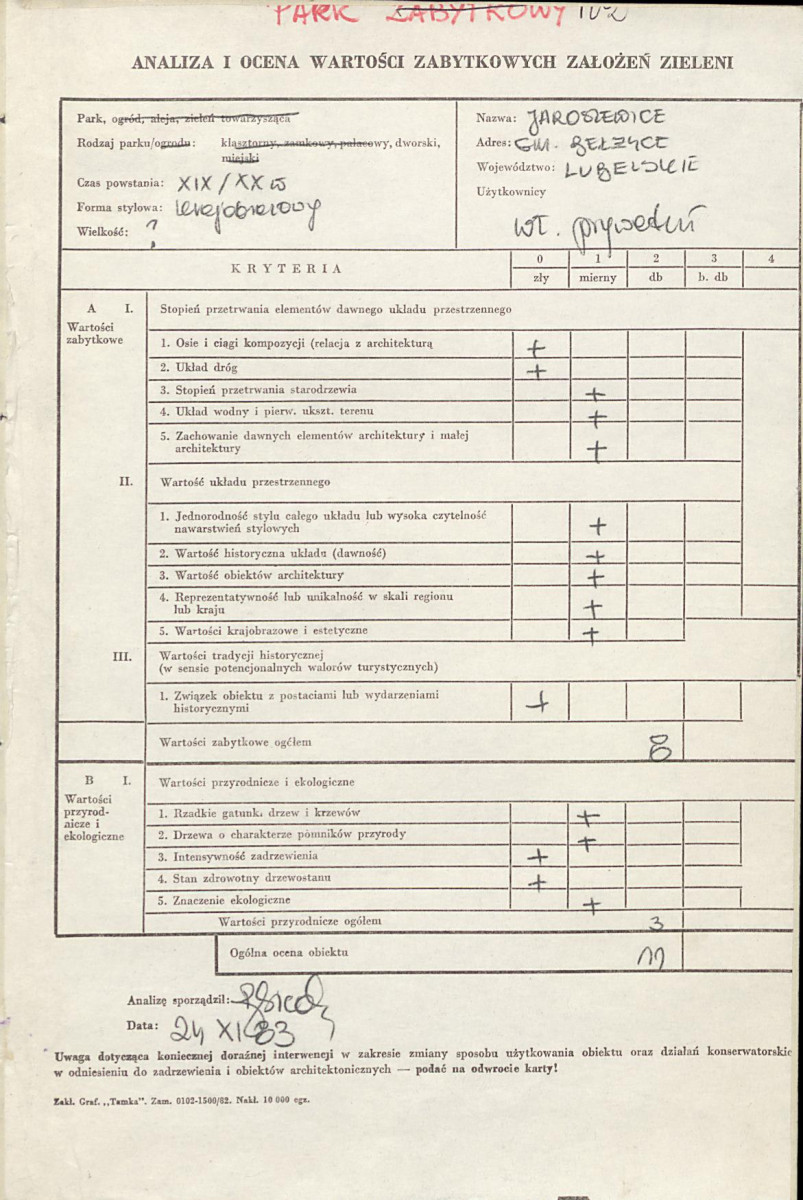 PARK ZABYTKOWY
ANALIZA I OCENA WARTOŚCI ZABYTKOWYCH ZAŁOŻEŃ ZIELENI
Park, ogród, aleja, zieleń towarzysząca
Rodzaj parku/ogrodu: klasztorny, zamkowy, pałacowy, dworski,
miejski
Czas powstania: XIX/XX w
Forma stylowa: krajobrazowy
Wielkość: ?
Nazwa: JAROSZEWICE
Adres: GM. BEŁŻYCE
Województwo: LUBELSKIE
Użytkownicy
wł. prywatna
KRYTERIA
0 1 2 3 4
zły mierny db b. db
A I. Stopień przetrwania elementów dawnego układu przestrzennego
Wartości
zabytkowe
1. Osie i ciągi kompozycji (relacja z architekturą +
2. Układ dróg +
3. Stopień przetrwania starodrzewia +
4. Układ wodny i pierw. ukszt. terenu +
5. Zachowanie dawnych elementów architektury i małej
architektury +
II. Wartość układu przestrzennego
1. Jednorodność stylu całego układu lub wysoka czytelność
nawarstwień stylowych +
2. Wartość historyczna układu (dawność) +
3. Wartość obiektów architektury +
4. Reprezentatywność lub unikalność w skali regionu
lub kraju +
5. Wartości krajobrazowe i estetyczne +
III. Wartości tradycji historycznej
(w sensie potencjonalnych walorów turystycznych)
1. Związek obiektu z postaciami lub wydarzeniami
historycznymi +
Wartości zabytkowe ogółem 8
B I. Wartości przyrodnicze i ekologiczne
Wartości
przyrod-
nicze i
ekologiczne
1. Rzadkie gatunki drzew i krzewów +
2. Drzewa o charakterze pomników przyrody +
3. Intensywność zadrzewienia +
4. Stan zdrowotny drzewostanu +
5. Znaczenie ekologiczne +
Wartości przyrodnicze ogółem 3
Ogólna ocena obiektu 11
Analizę sporządził:
Data: 24 XI 83
Uwaga dotycząca koniecznej doraźnej interwencji w zakresie zmiany sposobu użytkowania obiektu oraz działań konserwatorskic
w odniesieniu do zadrzewienia i obiektów architektonicznych — podać na odwrocie karty!
Zakł. Graf. „Tamka". Zam. 0102-1500/82. Nakł. 10 000 egz.